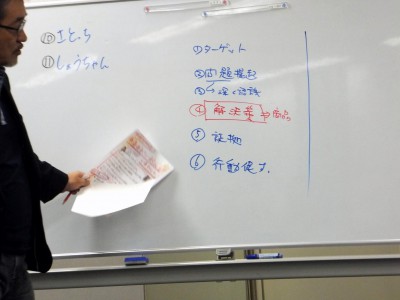 ⑩ さとっち
⑪ しょうちゃん
① ターゲット
② 問題提起
③
④ 解決策 ⇒ 商品
⑤ 証拠
⑥ 行動促す。